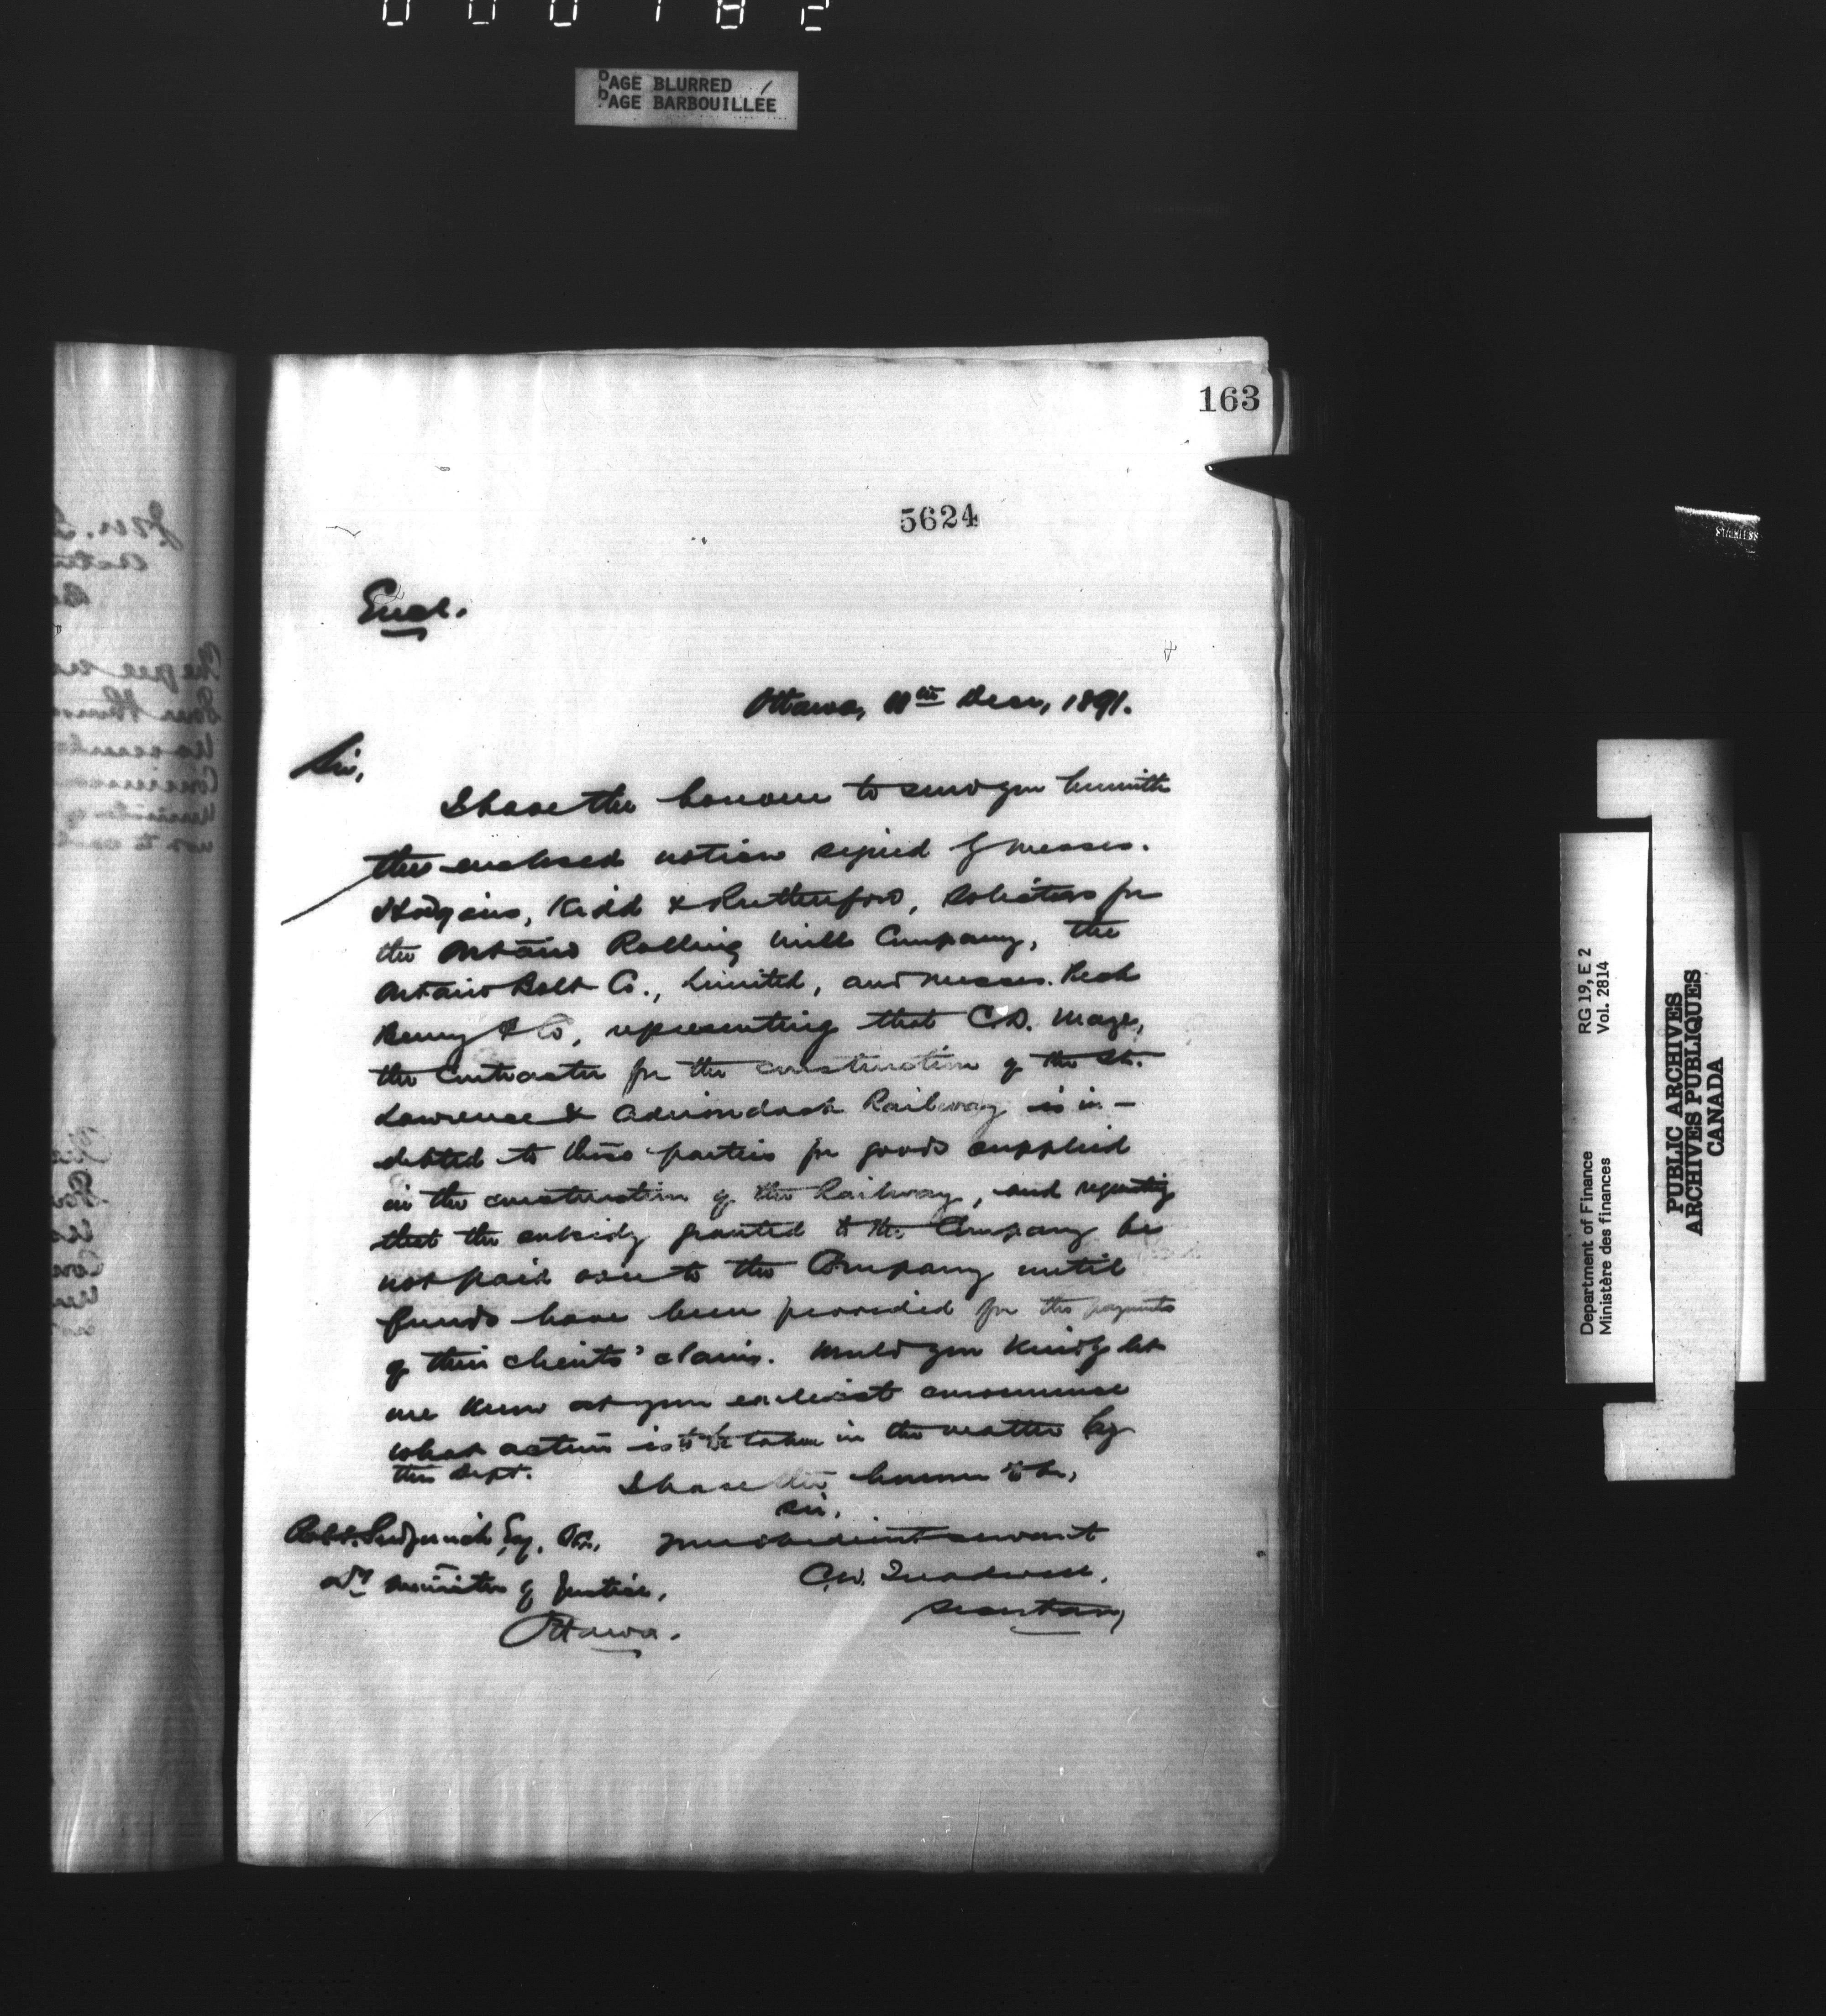 000182
PAGE BLURRED
PAGE BARBOUILLÉE
163
5624
Encl.
Ottawa, 11th Decr, 1891.
Sir,
I have the honour to send you herewith
the enclosed notice signed by Messrs.
Hodgins, Kidd & Rutherford, Solicitors for
the Ontario Rolling Mills Company, the
Ontario Bolt Co., Limited, and Messrs. Peck
Benny & Co, representing that C.D. Maze,
the Contractor for the construction of the St.
Lawrence & Adirondack Railway is in-
debted to these parties for goods supplied
in the construction of the Railway, and requesting
that the subsidy granted to the Company be
not paid over to the Company until
funds have been provided for the payments
of their clients' claims. Would you kindly let
me know at your earliest convenience
what action is to be taken in the matter by
this Dept.
I have the honour to be,
Sir,
Your obedient servant
C.W. Treadwell,
Secretary
Robt. Sedgewick, Esq. Q.C.,
Dy Minister of Justice,
Ottawa.
Department of Finance RG 19, E 2
Ministère des finances Vol. 2814
PUBLIC ARCHIVES
ARCHIVES PUBLIQUES
CANADA